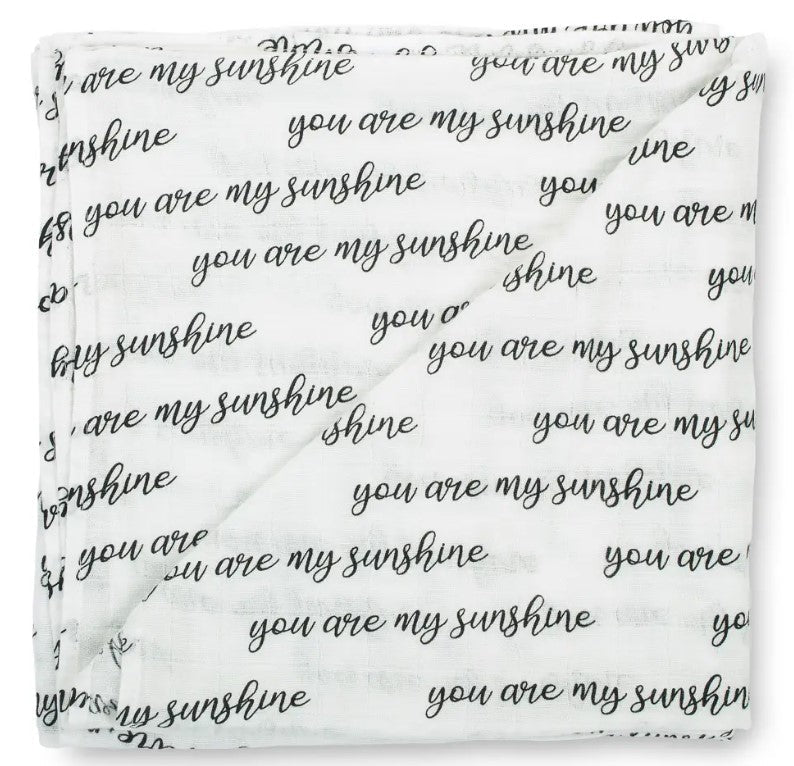 you are my sunshine
are my sunshine you are my sunshine
you are my sunshine
nshine shine
you are my sunshine you
you are my
you are my sunshine
shine you
you are my sunshine you are
you are my sunshine
are my sunshine
shine you are my
nshine you are my sunshine
you are
are my sunshine you are
you are my sunshine
my sunshine you are my sunshin